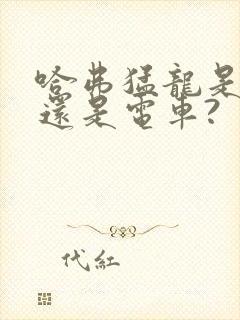 哈弗猛龍是
還是電車?
代紅